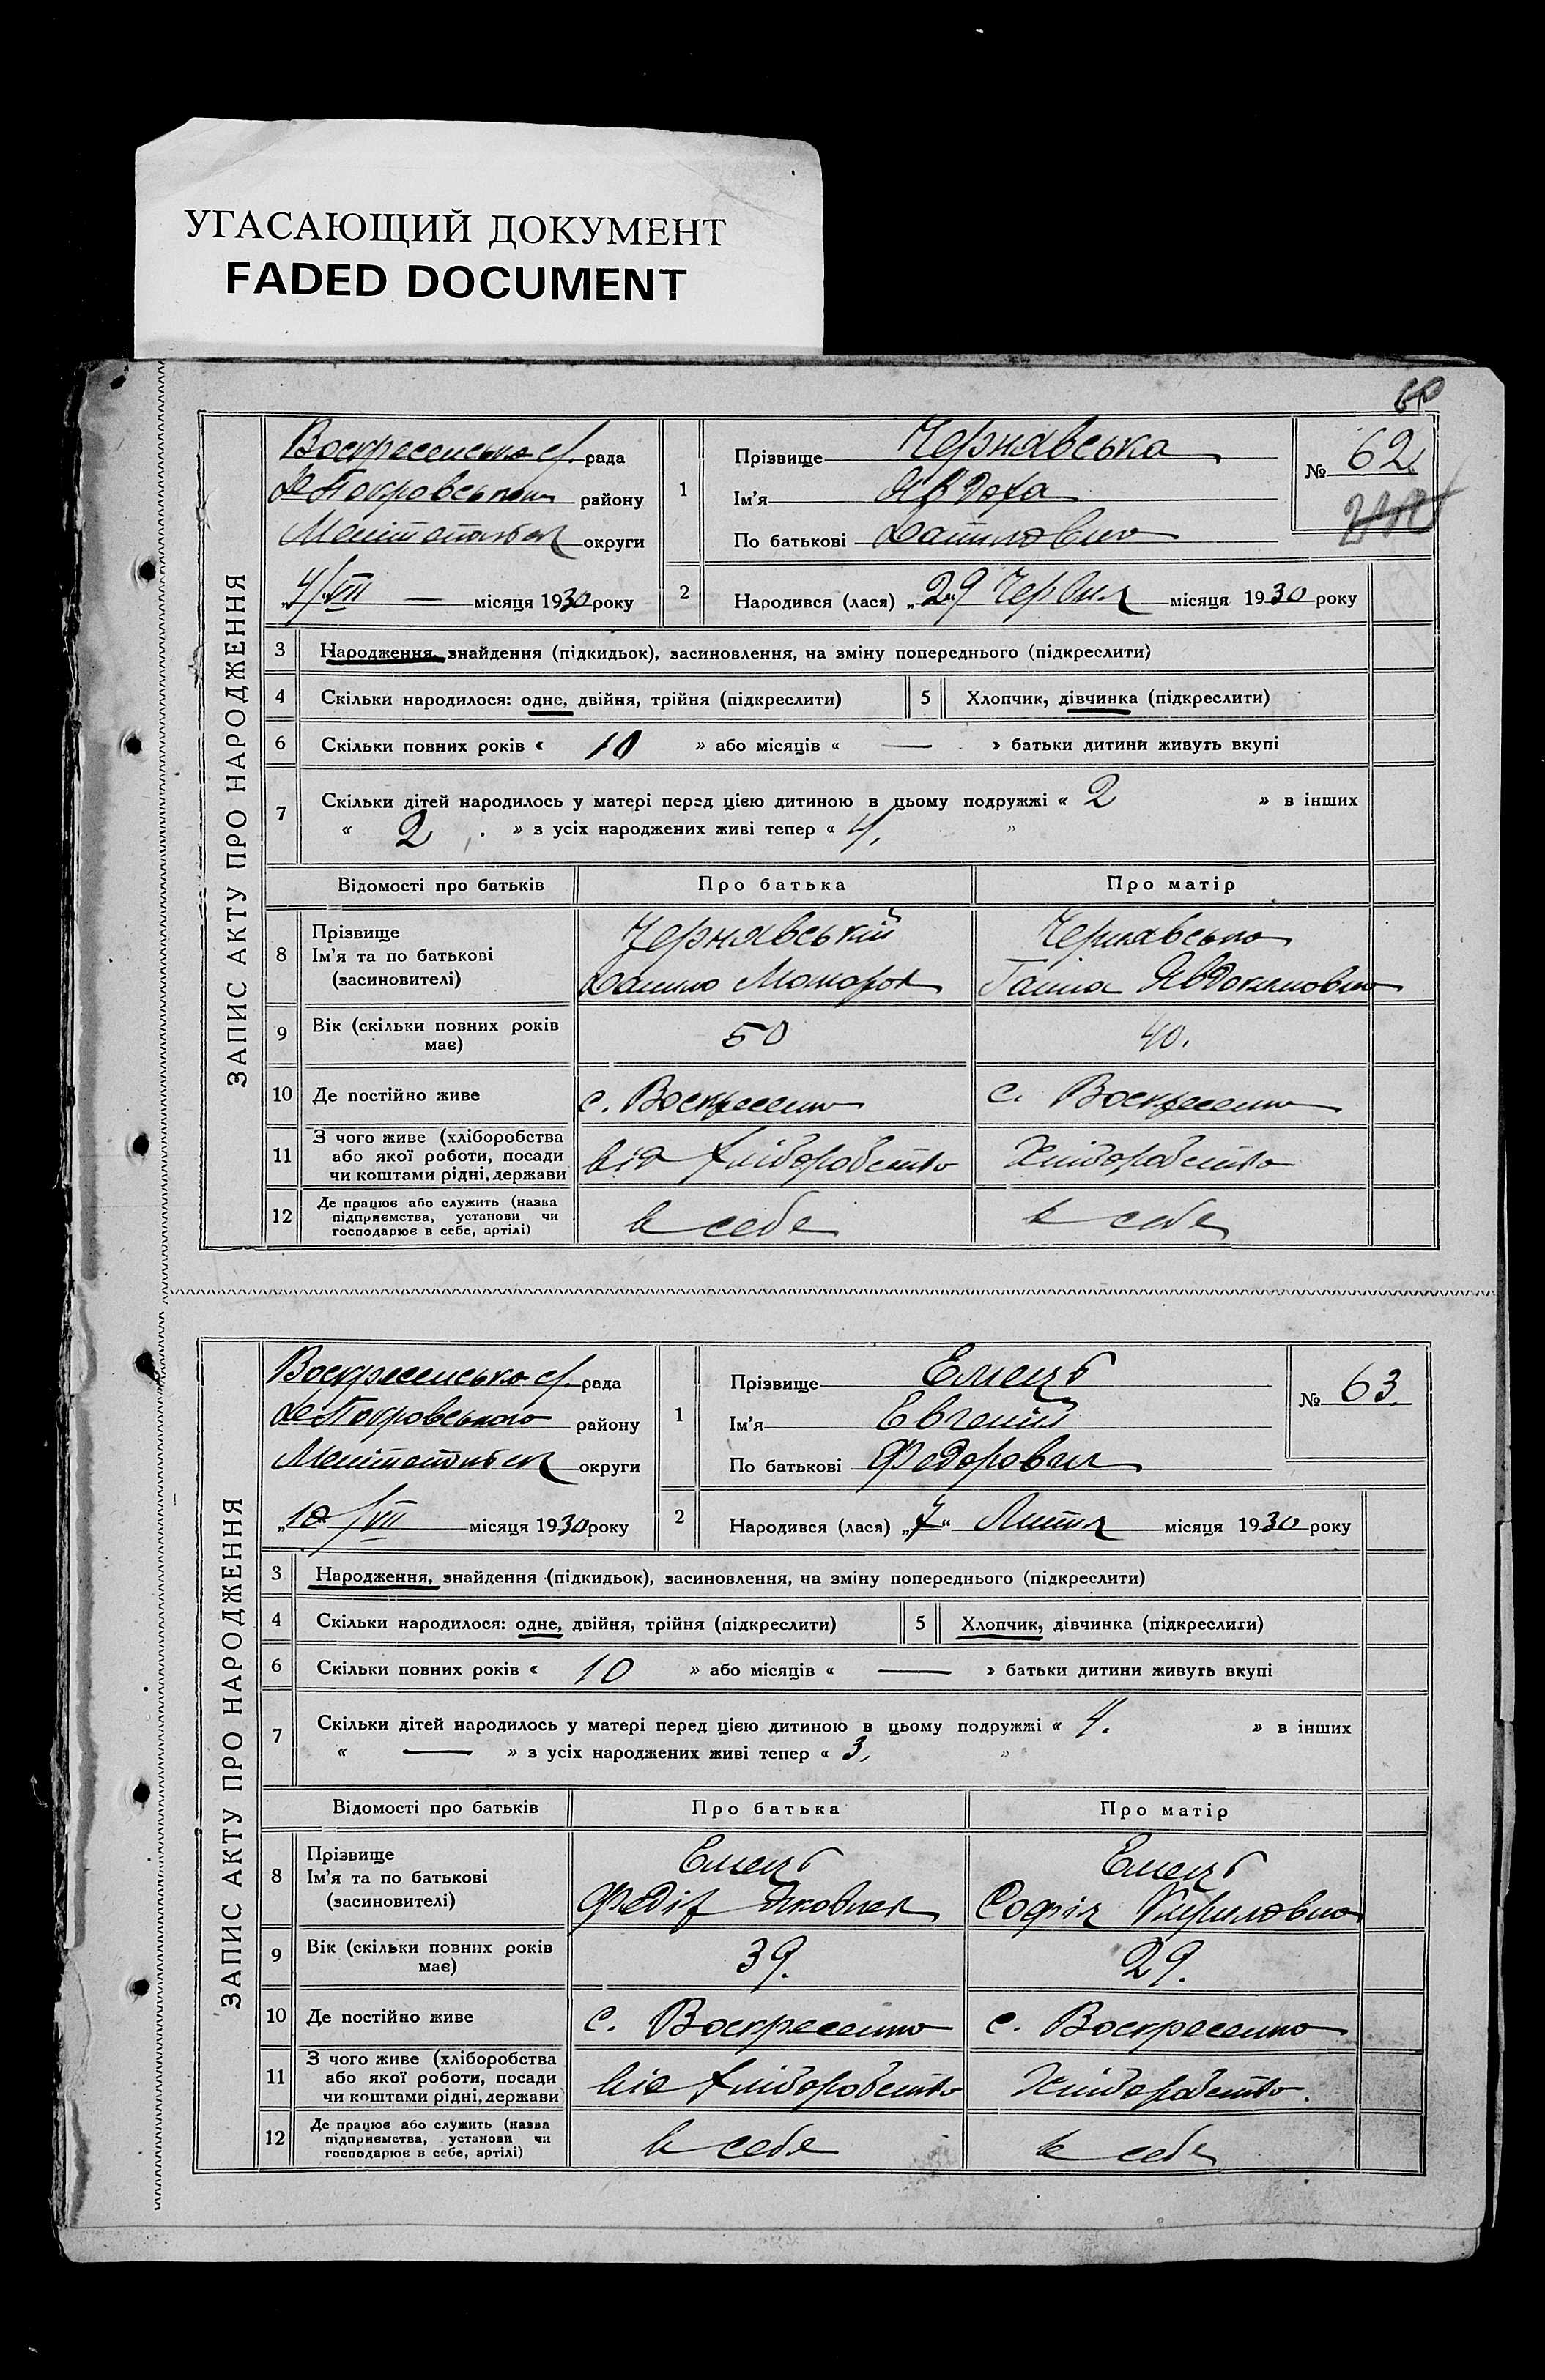 УГАСАЮЩИЙ ДОКУМЕНТ
FADED DOCUMENT
60
ЗАПИС АКТУ ПРО НАРОДЖЕННЯ
Воскресенська с/. рада
району
округи
4/VII — місяця 1930 року
1
Прізвище Чернявська
Ім'я Явдоха
По батькові Даниловна
№ 62
2
Народився (лася) „29" Червня місяця 1930 року
3 Народження, знайдення (підкидьок), засиновлення, на зміну попереднього (підкреслити)
4 Скільки народилося: одне, двійня, трійня (підкреслити) 5 Хлопчик, дівчинка (підкреслити)
6 Скільки повних років « 10 » або місяців « — » батьки дитини живуть вкупі
7 Скільки дітей народилось у матері перед цією дитиною в цьому подружжі « 2 » в інших
« 2 » з усіх народжених живі тепер « 4, »
Відомості про батьків Про батька Про матір
8 Прізвище
Ім'я та по батькові
(засиновителі)
Чернявській
Данило
Чернявська
Ганна Явдокимовна
9 Вік (скільки повних років має) 50 40.
10 Де постійно живе с. Воскресенка с. Воскресенка
11 З чого живе (хліборобства
або якої роботи, посади
чи коштами рідні, держави
від хліборобства Хліборобства
12 Де працює або служить (назва
підприємства, установи чи
господарює в себе, артілі)
в себе в себе
ЗАПИС АКТУ ПРО НАРОДЖЕННЯ
Воскресенська с/. рада
району
округи
„10/VII місяця 1930 року
1
Прізвище Емець
Ім'я Евгений
По батькові Федорович
№ 63.
2
Народився (лася) „7" Липня місяця 1930 року
3 Народження, знайдення (підкидьок), засиновлення, на зміну попереднього (підкреслити)
4 Скільки народилося: одне, двійня, трійня (підкреслити) 5 Хлопчик, дівчинка (підкреслити)
6 Скільки повних років « 10 » або місяців « — » батьки дитини живуть вкупі
7 Скільки дітей народилось у матері перед цією дитиною в цьому подружжі « 4. » в інших
« — » з усіх народжених живі тепер « 3, »
Відомості про батьків Про батька Про матір
8 Прізвище
Ім'я та по батькові
(засиновителі)
Емець
Федір Яковлев
Емець
Софія Кириловна
9 Вік (скільки повних років має) 39. 29.
10 Де постійно живе с. Воскресенка с. Воскресенка
11 З чого живе (хліборобства
або якої роботи, посади
чи коштами рідні, держави
від хліборобства Хліборобства.
12 Де працює або служить (назва
підприємства, установи чи
господарює в себе, артілі)
в себе в себе